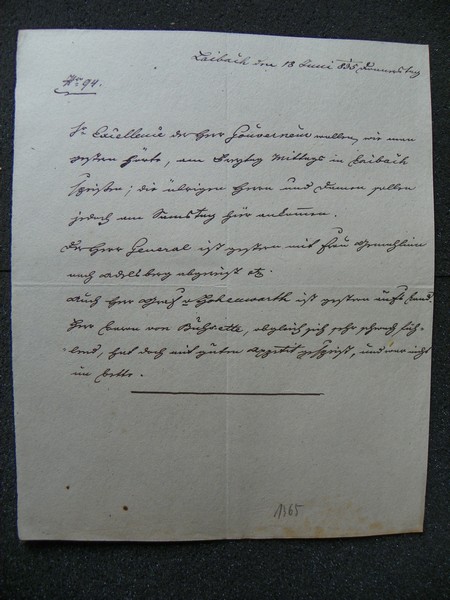 Laibach den 18 Juni 835 Donnerstag
No 94.
Sr Excellenz der Herr Gouverneur wollen, wie man
gestern hörte, am Freytag Mittags in Laibach
speisen; die übrigen Herrn und Damen sollen
jedoch am Samstag hier ankommen.
Der Herr General ist gestern mit Frau Gemahlinn
nach Adelsberg abgereist etz.
Auch Herr Graf v Hohenwarth ist gestern aufs Land.
Herr Baron von obgleich sich sehr schwach füh-
lend, hat doch mit guten Appetit gespeist, und war nicht
im Bette.
1365